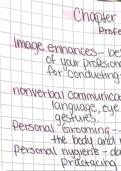 Chapter
Profe
Image enhances - be
of your profession
for conducting
nonverbal communica
language, eye
gestures.
personal Grooming -
the body and
personal hygiene - da
practacing